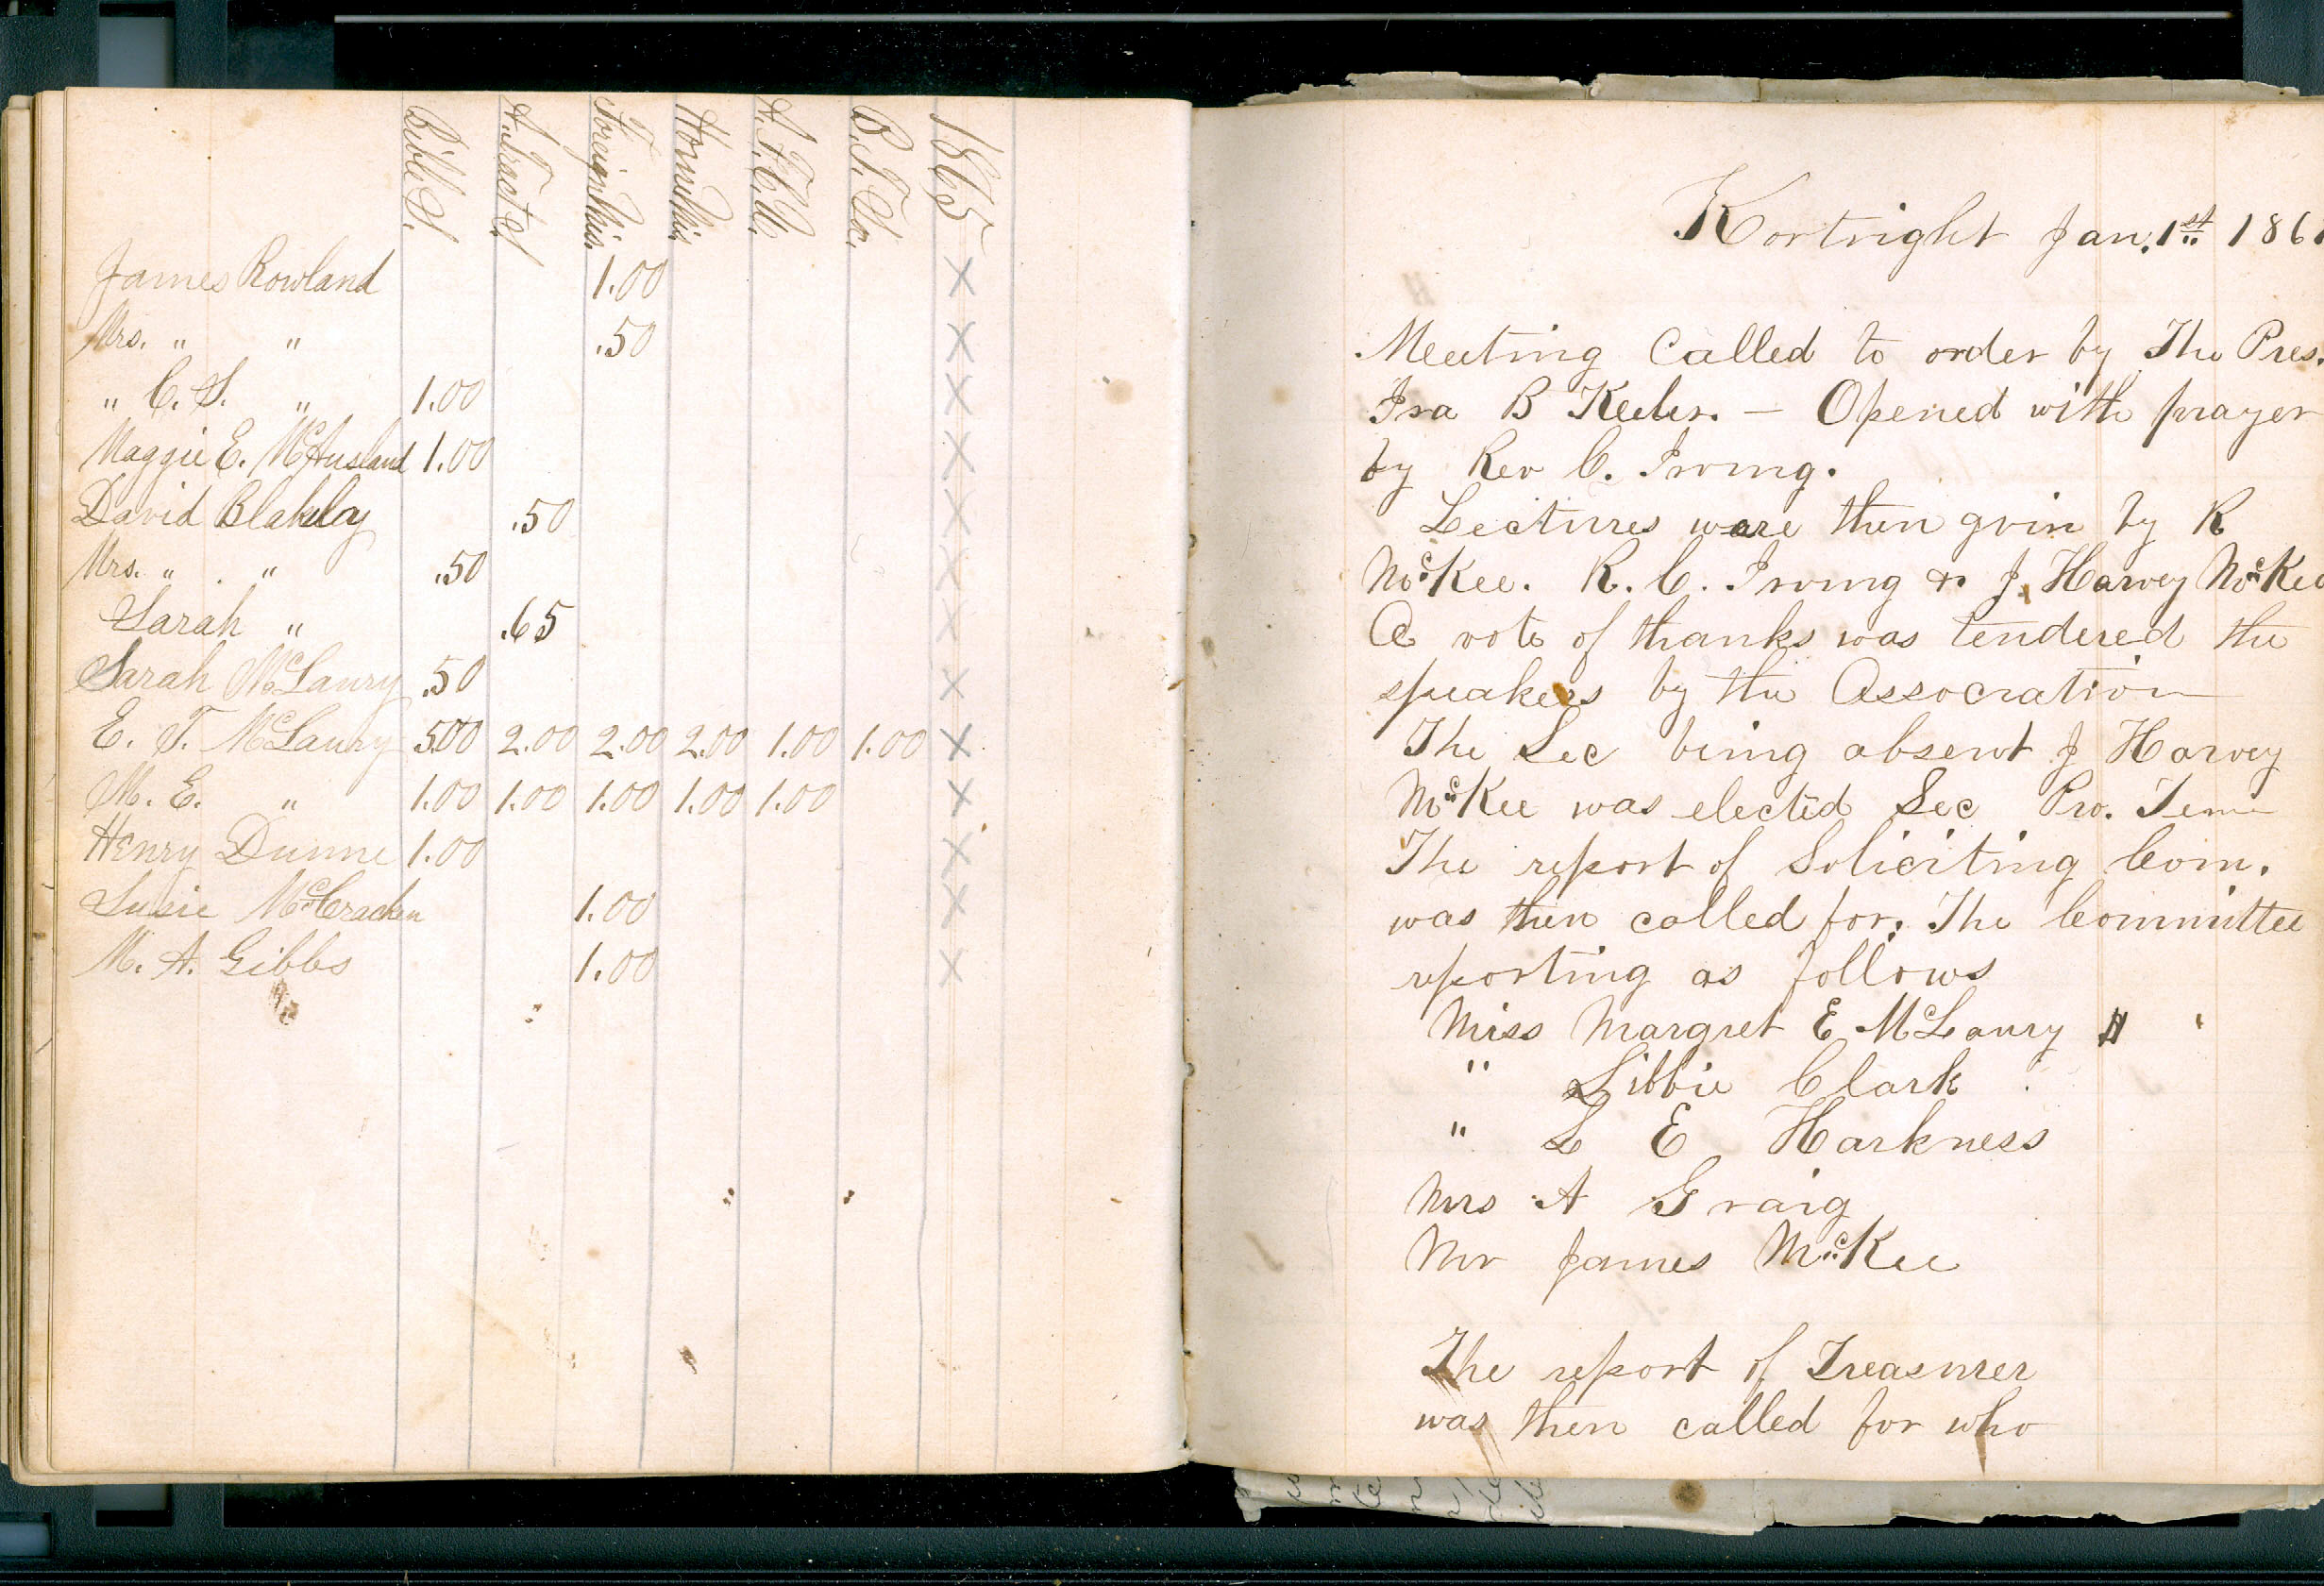 Bible S. A. Tract S. Foreign Mis. Home Mis. A. & F. C. U. B. T. So. 1865
James Rowland 1.00 X
Mrs. " " .50 X
" C. S. " 1.00 X
Maggie E. McAusland 1.00 X
David Blakeley .50 X
Mrs. " " .50 X
Sarah " .65 X
Sarah McLaury .50 X
E. T. McLaury 5.00 2.00 2.00 2.00 1.00 1.00 X
M. E. " 1.00 1.00 1.00 1.00 1.00 X
Henry Dunne 1.00 X
Susie McCracken 1.00 X
M. A. Gibbs 1.00 X
Kortright Jan. 1st 186
Meeting Called to order by The Pres.
Ira B Keeler. — Opened with prayer
by Rev C. Irving.
Lectures ware then givin by R
McKee. R. C. Irving & J. Harvey McKee
A vote of thanks was tendered the
speakers by the Association
The Sec being absent J Harvey
McKee was elected Sec Pro. Tem
The report of Soliciting Com.
was then called for. The Committee
reporting as follows
Miss Margret E McLaury
" Libbie Clark
" L E Harkness
Mrs A Graig
Mr James McKee
The report of Treasurer
was then called for who